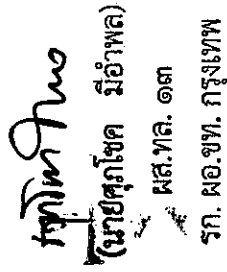 (นายศุภโชค มีอำพล)
ผส.ทล. ๑๓
รก. ผอ.ขท. กรุงเทพ